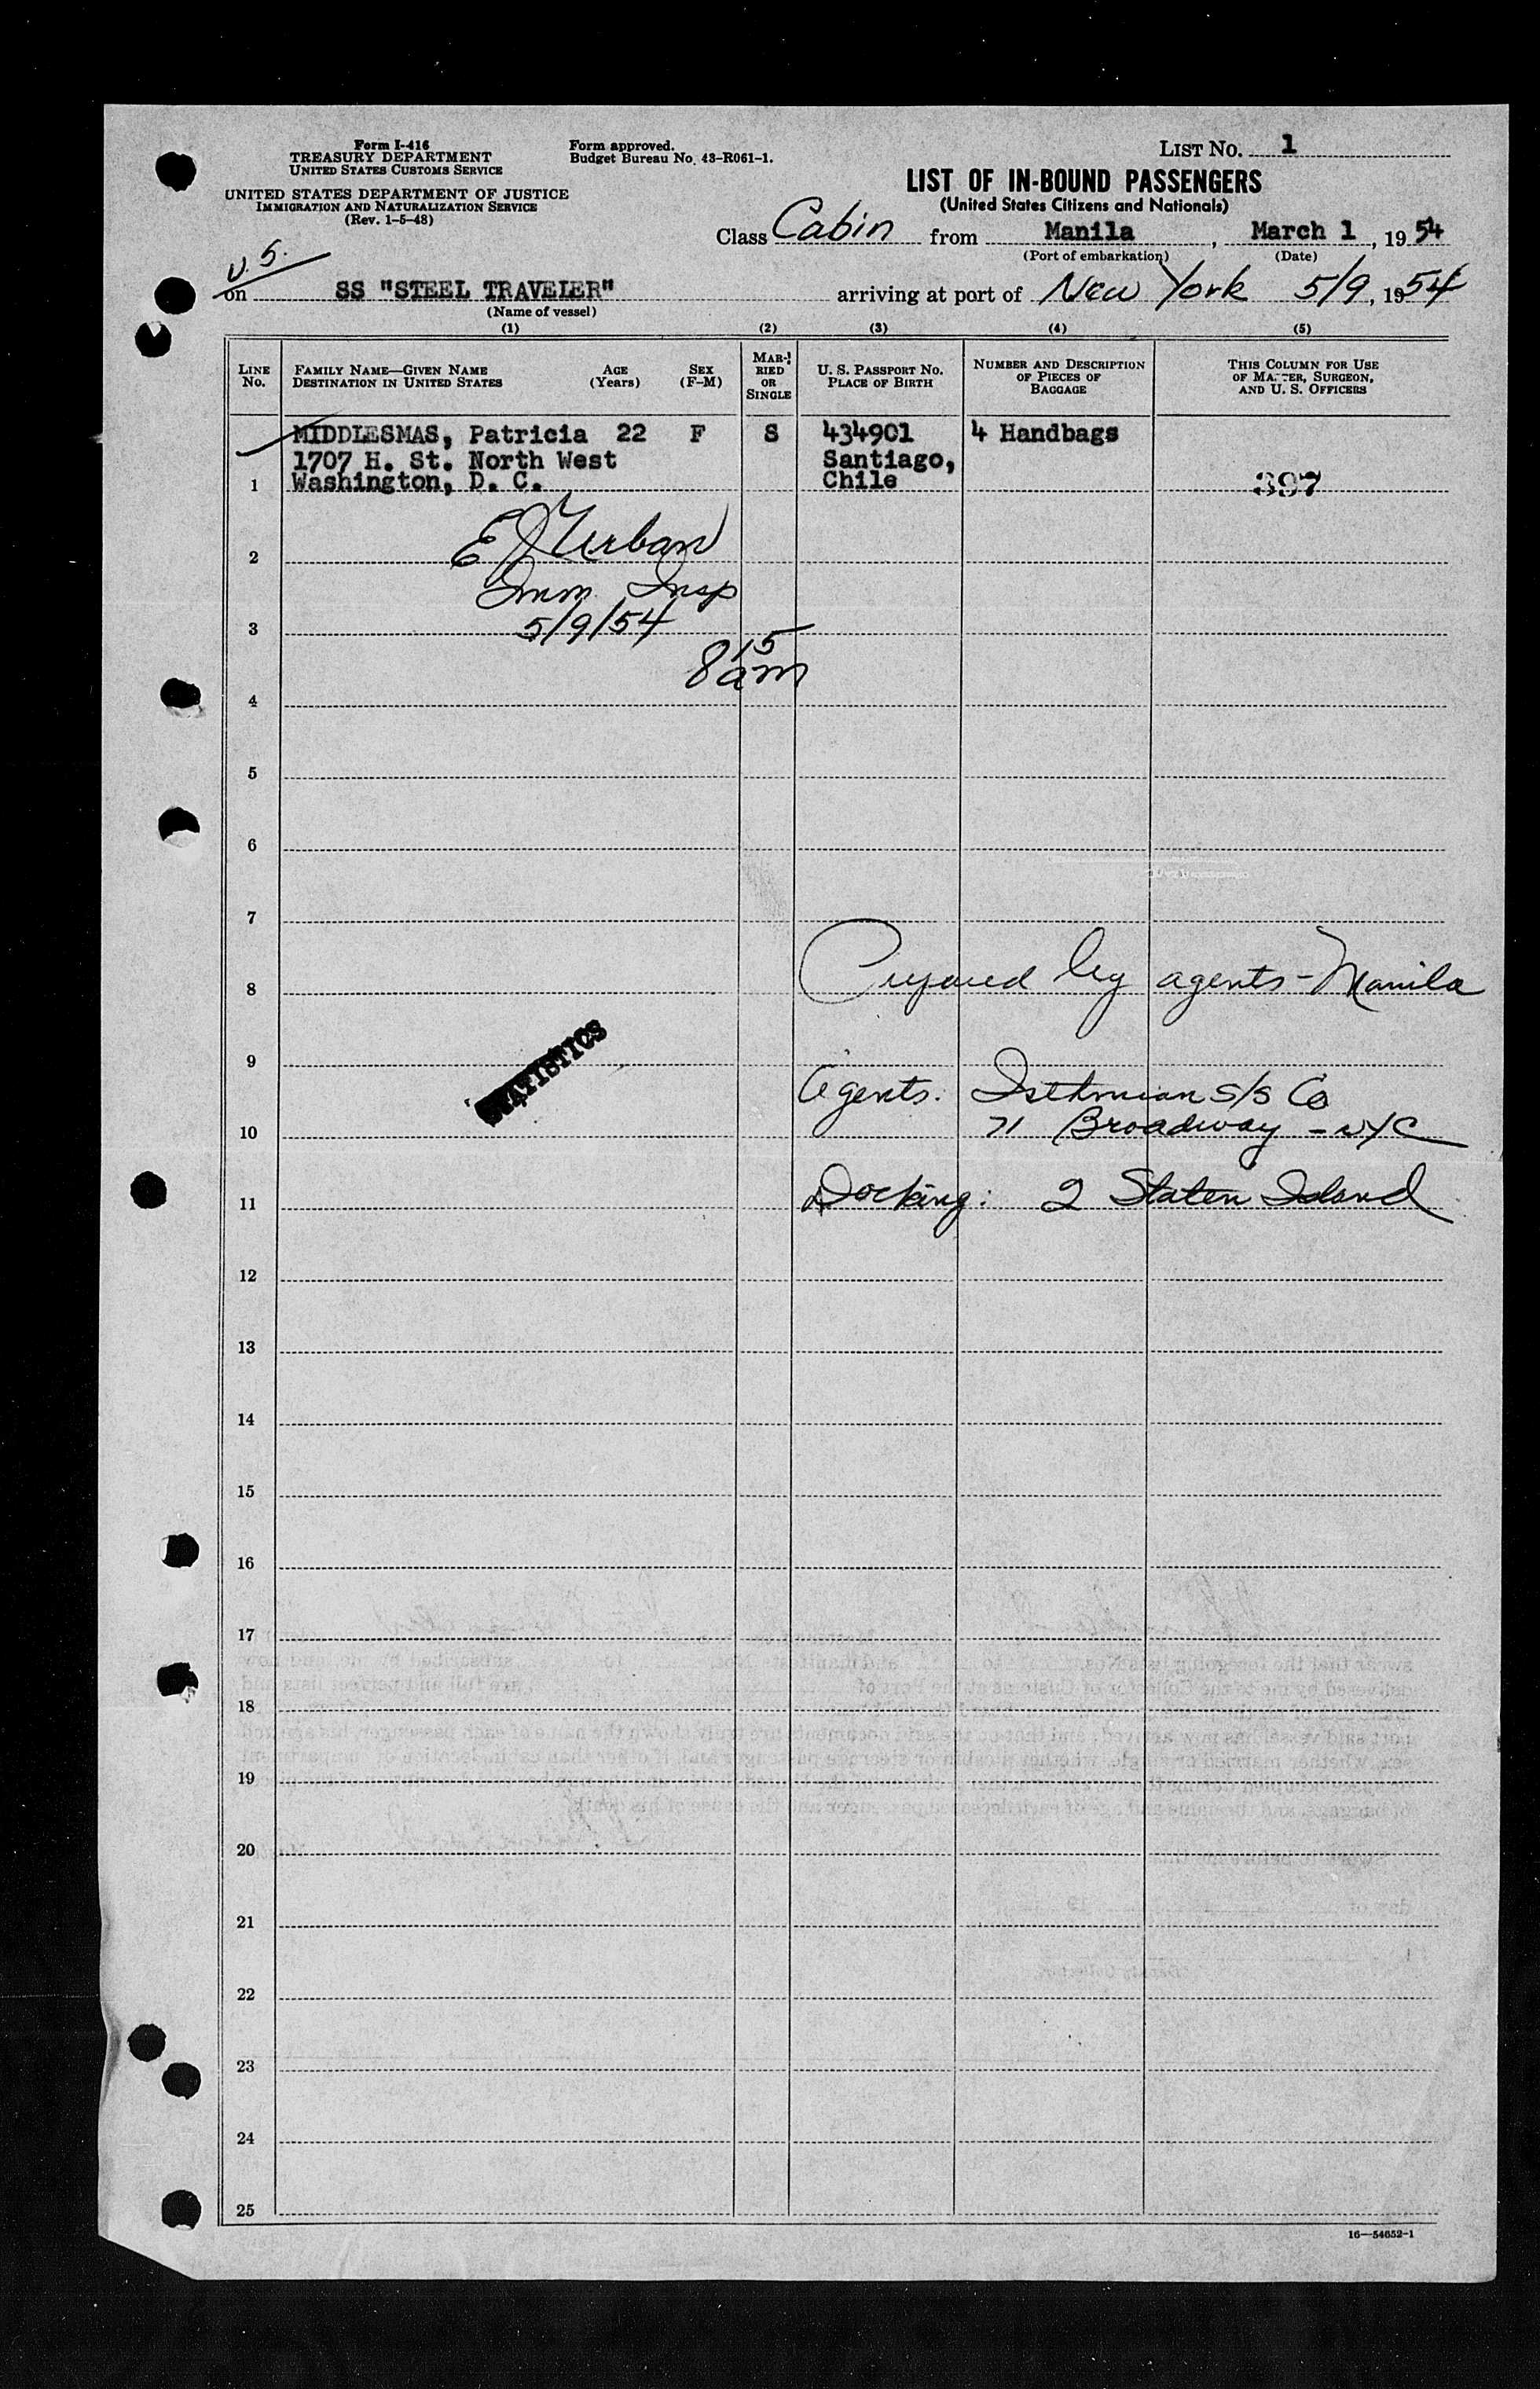 Form I-416
TREASURY DEPARTMENT
UNITED STATES CUSTOMS SERVICE
UNITED STATES DEPARTMENT OF JUSTICE
IMMIGRATION AND NATURALIZATION SERVICE
(Rev. 1-5-48)
Form approved.
Budget Bureau No. 43-R061-1.
LIST No. 1
LIST OF IN-BOUND PASSENGERS
(United States Citizens and Nationals)
Class Cabin from Manila, March 1, 1954
(Port of embarkation) (Date)
U.S.
on SS "STEEL TRAVELER" arriving at port of New York 5/9, 1954
(Name of vessel)
(1) (2) (3) (4) (5)
LINE No.
FAMILY NAME—GIVEN NAME
DESTINATION IN UNITED STATES
AGE (Years)
SEX (F-M)
MARRIED OR SINGLE
U. S. PASSPORT NO.
PLACE OF BIRTH
NUMBER AND DESCRIPTION
OF PIECES OF
BAGGAGE
THIS COLUMN FOR USE
OF MASTER, SURGEON,
AND U. S. OFFICERS
MIDDLESMAS, Patricia 22 F S 434901 4 Handbags
1707 H. St. North West Santiago,
1 Washington, D. C. Chile 397
E J Urban
2
Imm. Insp
3 5/9/54
8 15 am
4
5
6
7
8 Prepared by agents - Manila
9
STATISTICS
Agents: Isthmian S/S Co
10 71 Broadway - NYC
11 Docking: 2 Staten Island
12
13
14
15
16
17
18
19
20
21
22
23
24
25
16—54652-1